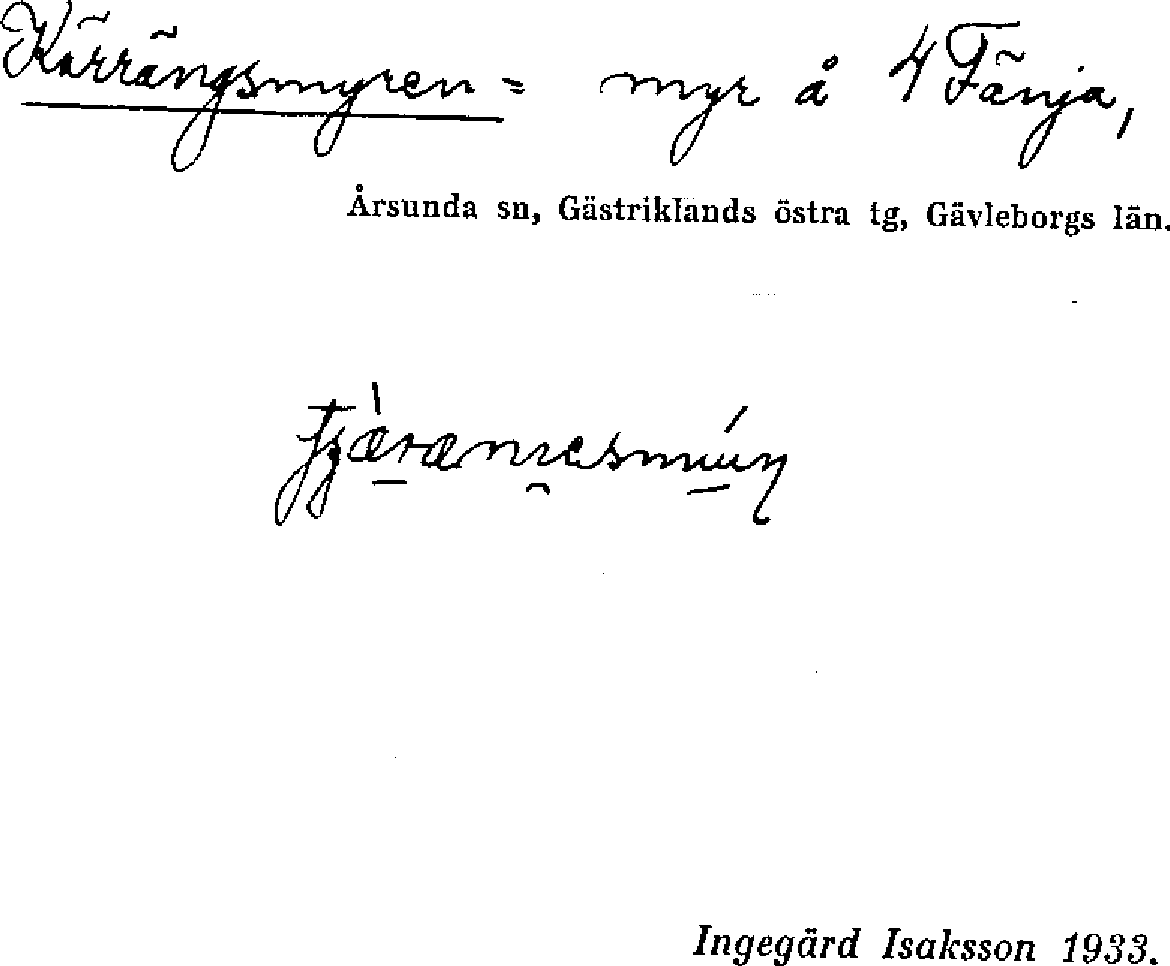 Kärrängsmyren = myr å 4 Fänja,
Årsunda sn, Gästriklands östra tg, Gävleborgs län.
Ingegärd Isaksson 1933.